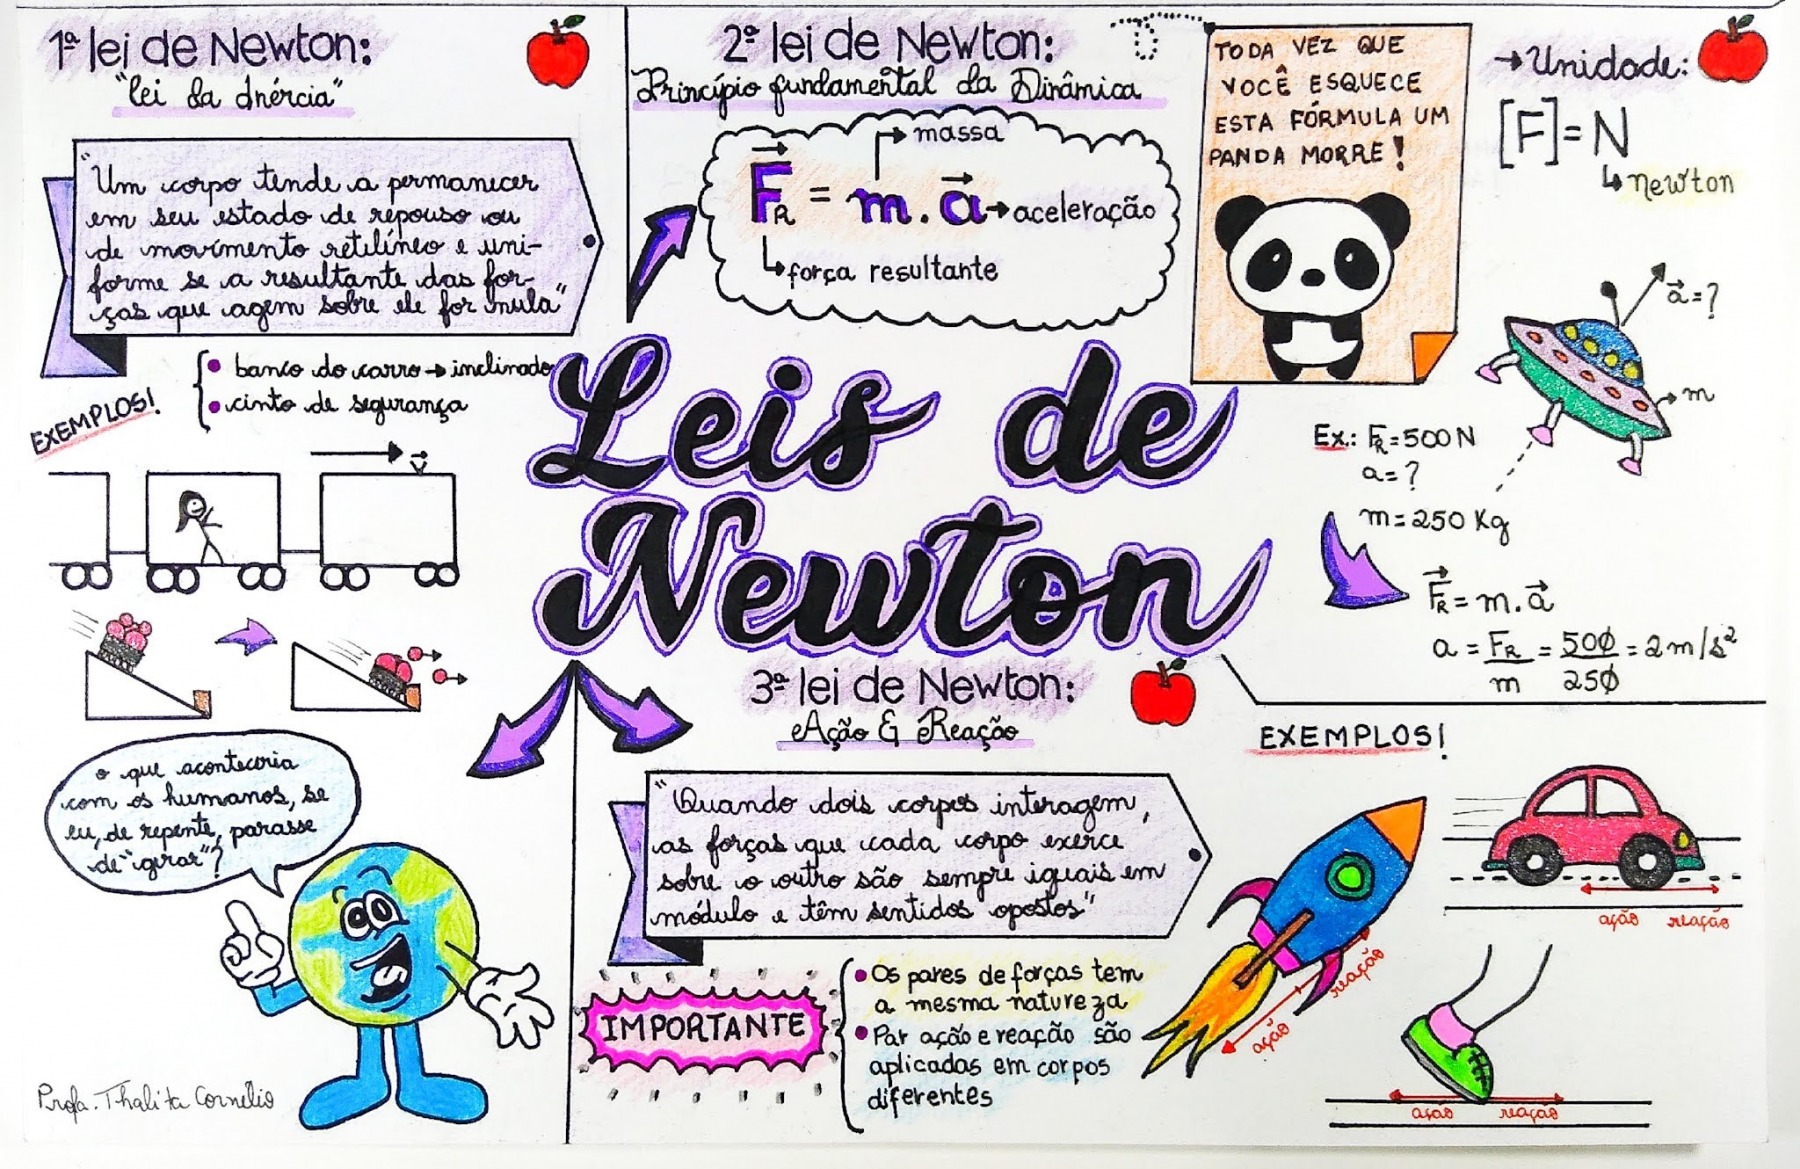 1ª lei de Newton:
"lei da Inércia"
"Um corpo tende a permanecer
em seu estado de repouso ou
de movimento retilíneo e uni-
forme se a resultante das for-
ças que agem sobre ele for nula"
EXEMPLOS!
• banco do carro → inclinado
• cinto de segurança
v
o que aconteceria
com os humanos, se
eu, de repente, parasse
de "girar"?
Profa. Thalita Cornélio
2ª lei de Newton:
Princípio fundamental da Dinâmica
massa
F_R = m . a → aceleração
força resultante
TODA VEZ QUE
VOCÊ ESQUECE
ESTA FÓRMULA UM
PANDA MORRE!
→ Unidade:
[F] = N
newton
a = ?
m
Ex.: F_R = 500 N
a = ?
m = 250 Kg
F_R = m . a
a = F_R/m = 500/250 = 2 m/s²
Leis de
Newton
3ª lei de Newton:
Ação & Reação
"Quando dois corpos interagem,
as forças que cada corpo exerce
sobre o outro são sempre iguais em
módulo e têm sentidos opostos"
IMPORTANTE
• Os pares de forças tem
a mesma natureza
• Par ação e reação são
aplicadas em corpos
diferentes
EXEMPLOS!
ação reação
ação reação
ação reação